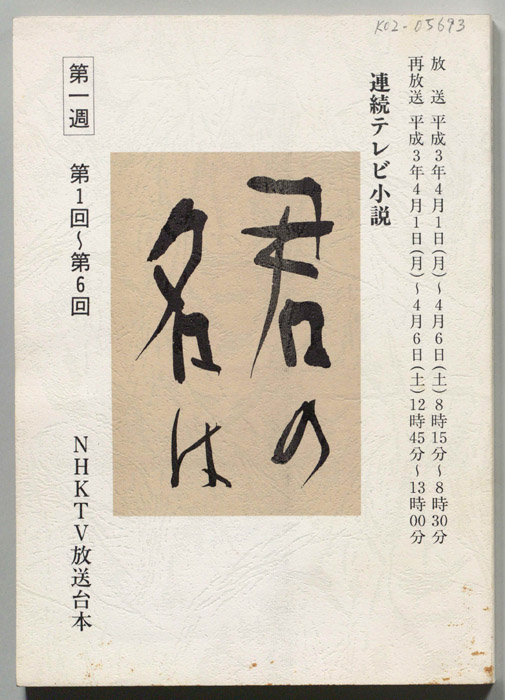 K02-05693
放 送 平成3年4月1日(月)~4月6日(土)8時15分~8時30分
再放送 平成3年4月1日(月)~4月6日(土)12時45分~13時00分
連続テレビ小説
君の
名は
第一週 第1回~第6回
NHKTV放送台本